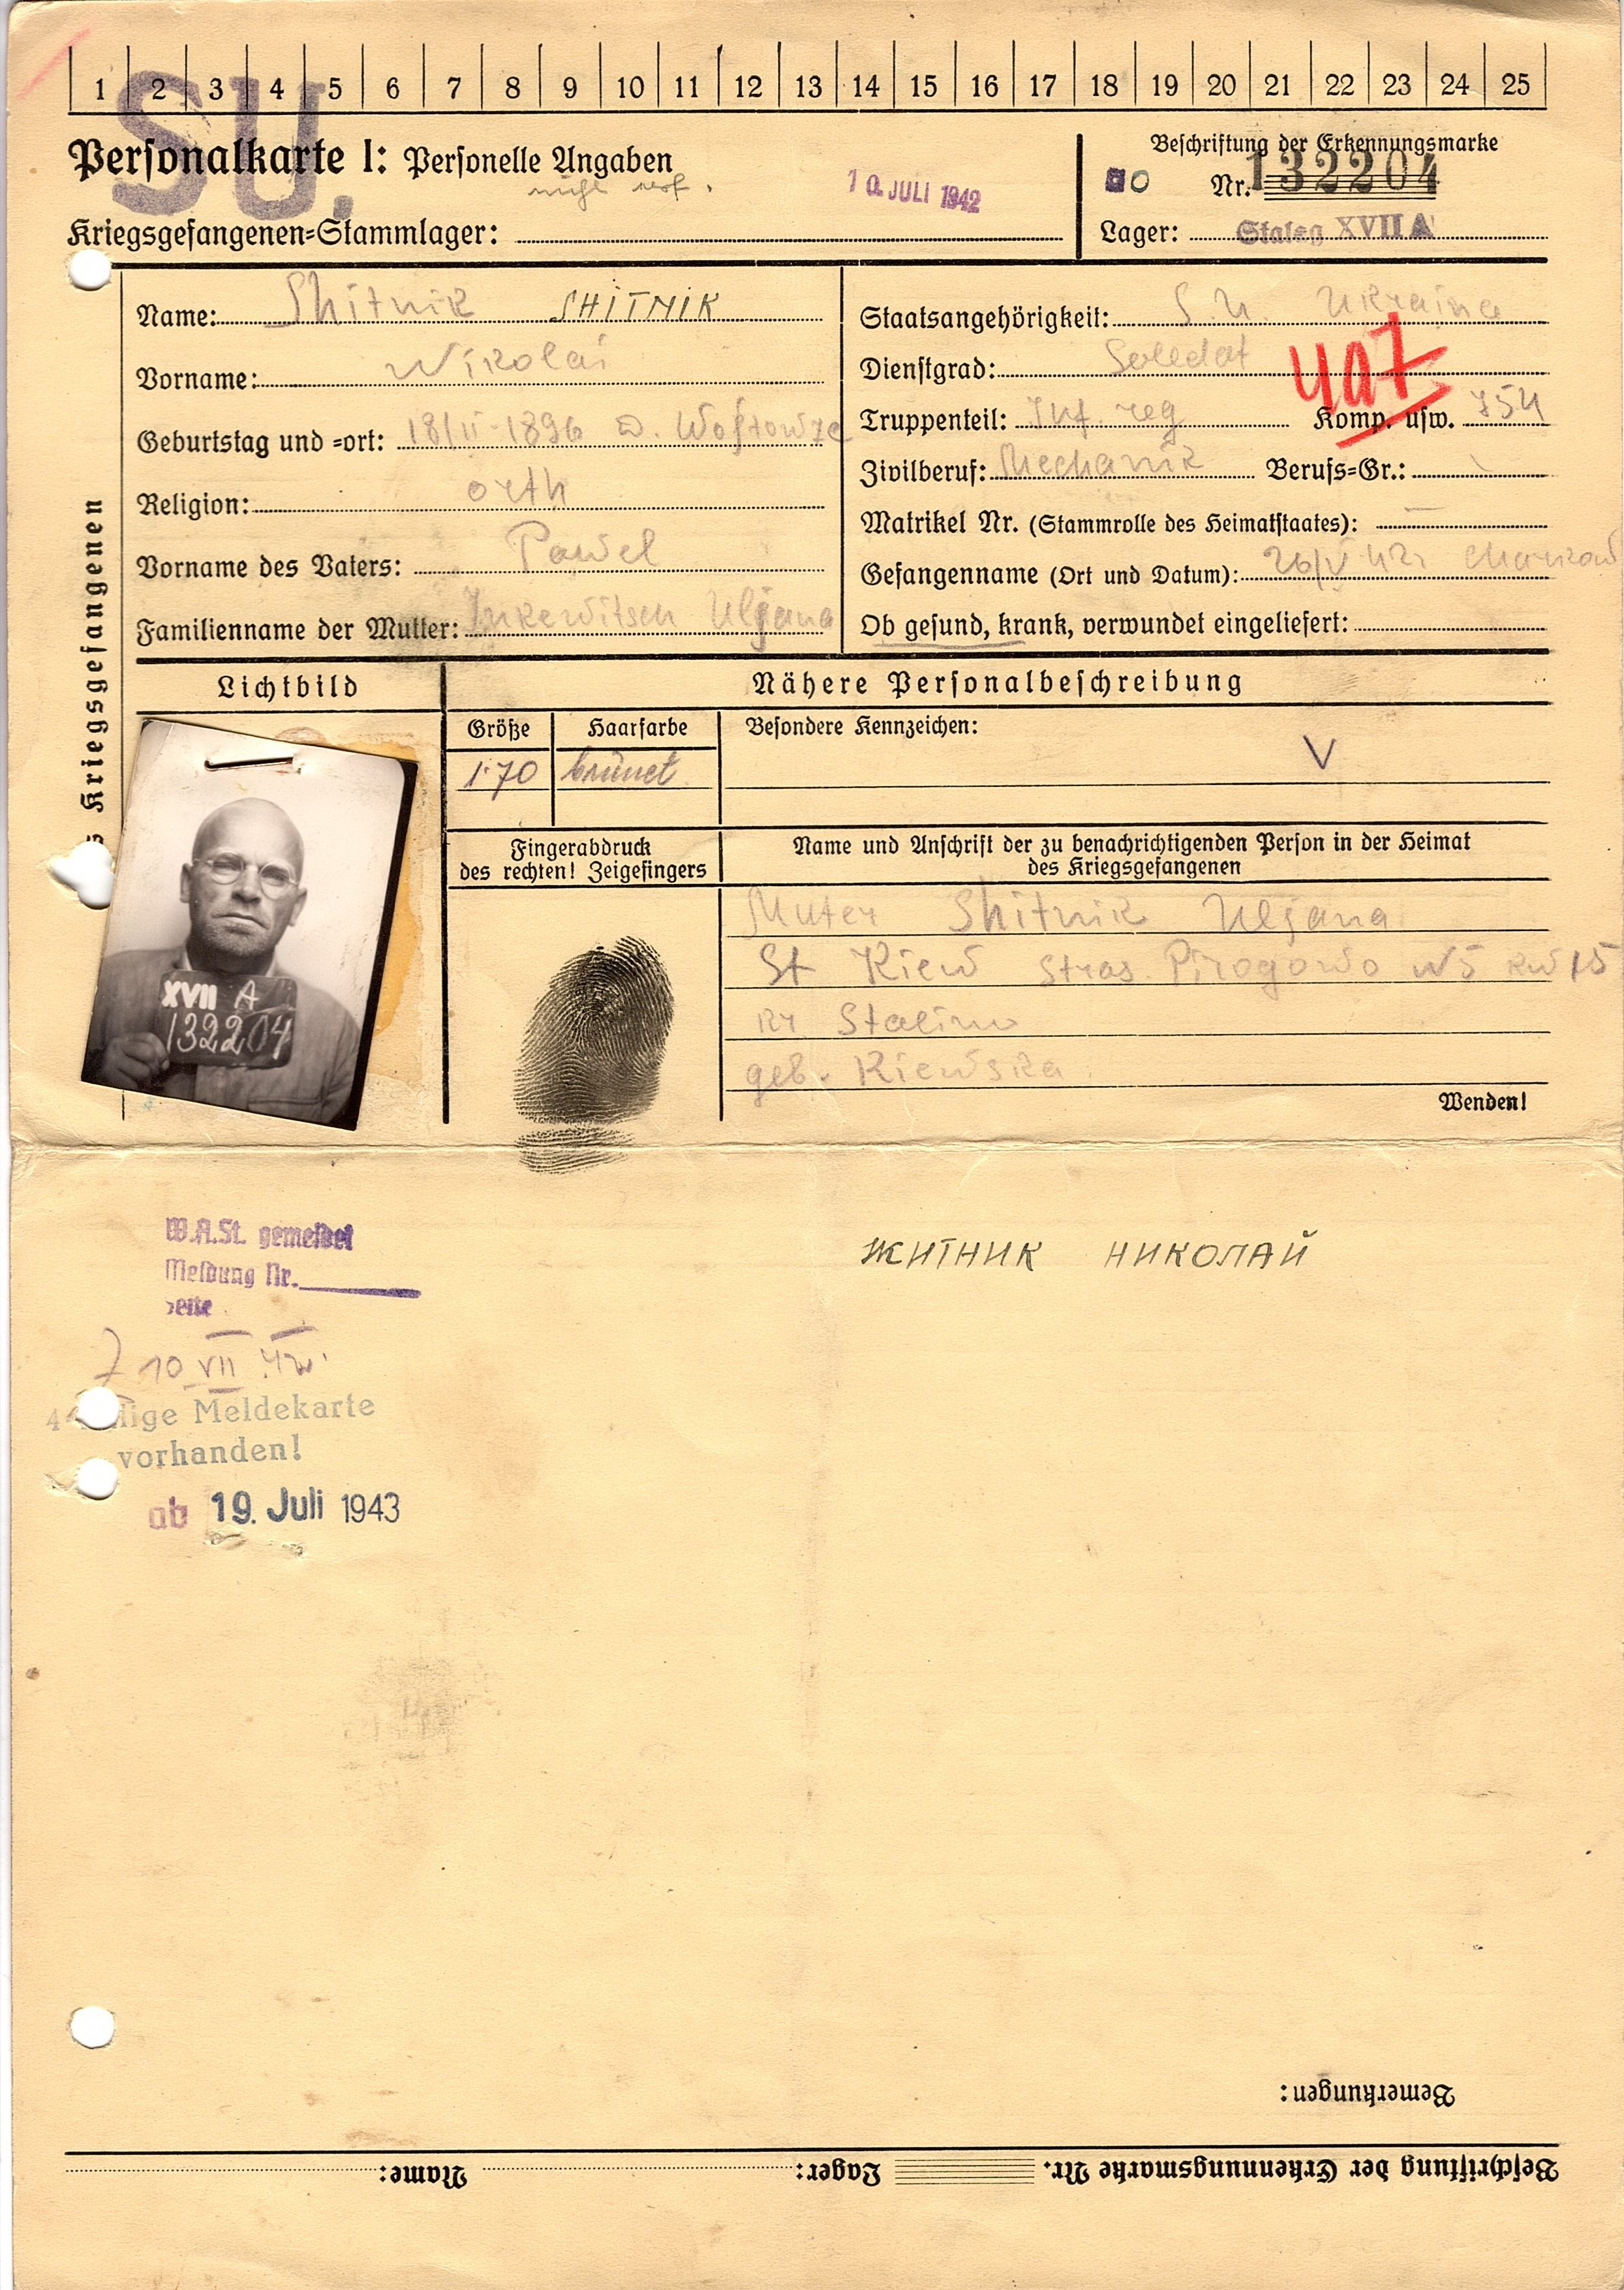 1 2 3 4 5 6 7 8 9 10 11 12 13 14 15 16 17 18 19 20 21 22 23 24 25
SU.
Personalkarte I: Personelle Angaben
10. JULI 1942
Beschriftung der Erkennungsmarke
Nr. 132204
Kriegsgefangenen-Stammlager:
Lager: Stalag XVII A
Name: Shitnik SHITNIK
Vorname: Nikolai
Geburtstag und =ort: 18/II-1896 D.
Religion: orth
Vorname des Vaters: Pawel
Familienname der Mutter: Uljana
Staatsangehörigkeit: S.U. Ukraina
Dienstgrad: Soldat
Truppenteil: Inf. reg Komp. usw. 754
Zivilberuf: Mechanik Berufs=Gr.:
Matrikel Nr. (Stammrolle des Heimatstaates): —
Gefangenname (Ort und Datum): 26/V 42 Charkow
Ob gesund, krank, verwundet eingeliefert:
Kriegsgefangenen
Lichtbild
XVII A
132204
Nähere Personalbeschreibung
Größe Haarfarbe Besondere Kennzeichen:
1.70 brünet V
Fingerabdruck
des rechten! Zeigefingers
Name und Anschrift der zu benachrichtigenden Person in der Heimat
des Kriegsgefangenen
Muter Shitnik Uljana
St Kiew Stras Pirogowo N5 kw 15
Stalino
geb. Kiewska
Wenden!
W.A.St. gemeldet
Meldung Nr.
Seite
10 VII 42
Meldekarte
vorhanden!
ab 19. Juli 1943
ЖИТНИК НИКОЛАЙ
Bemerkungen:
Beschriftung der Erkennungsmarke Nr. Lager: Name: